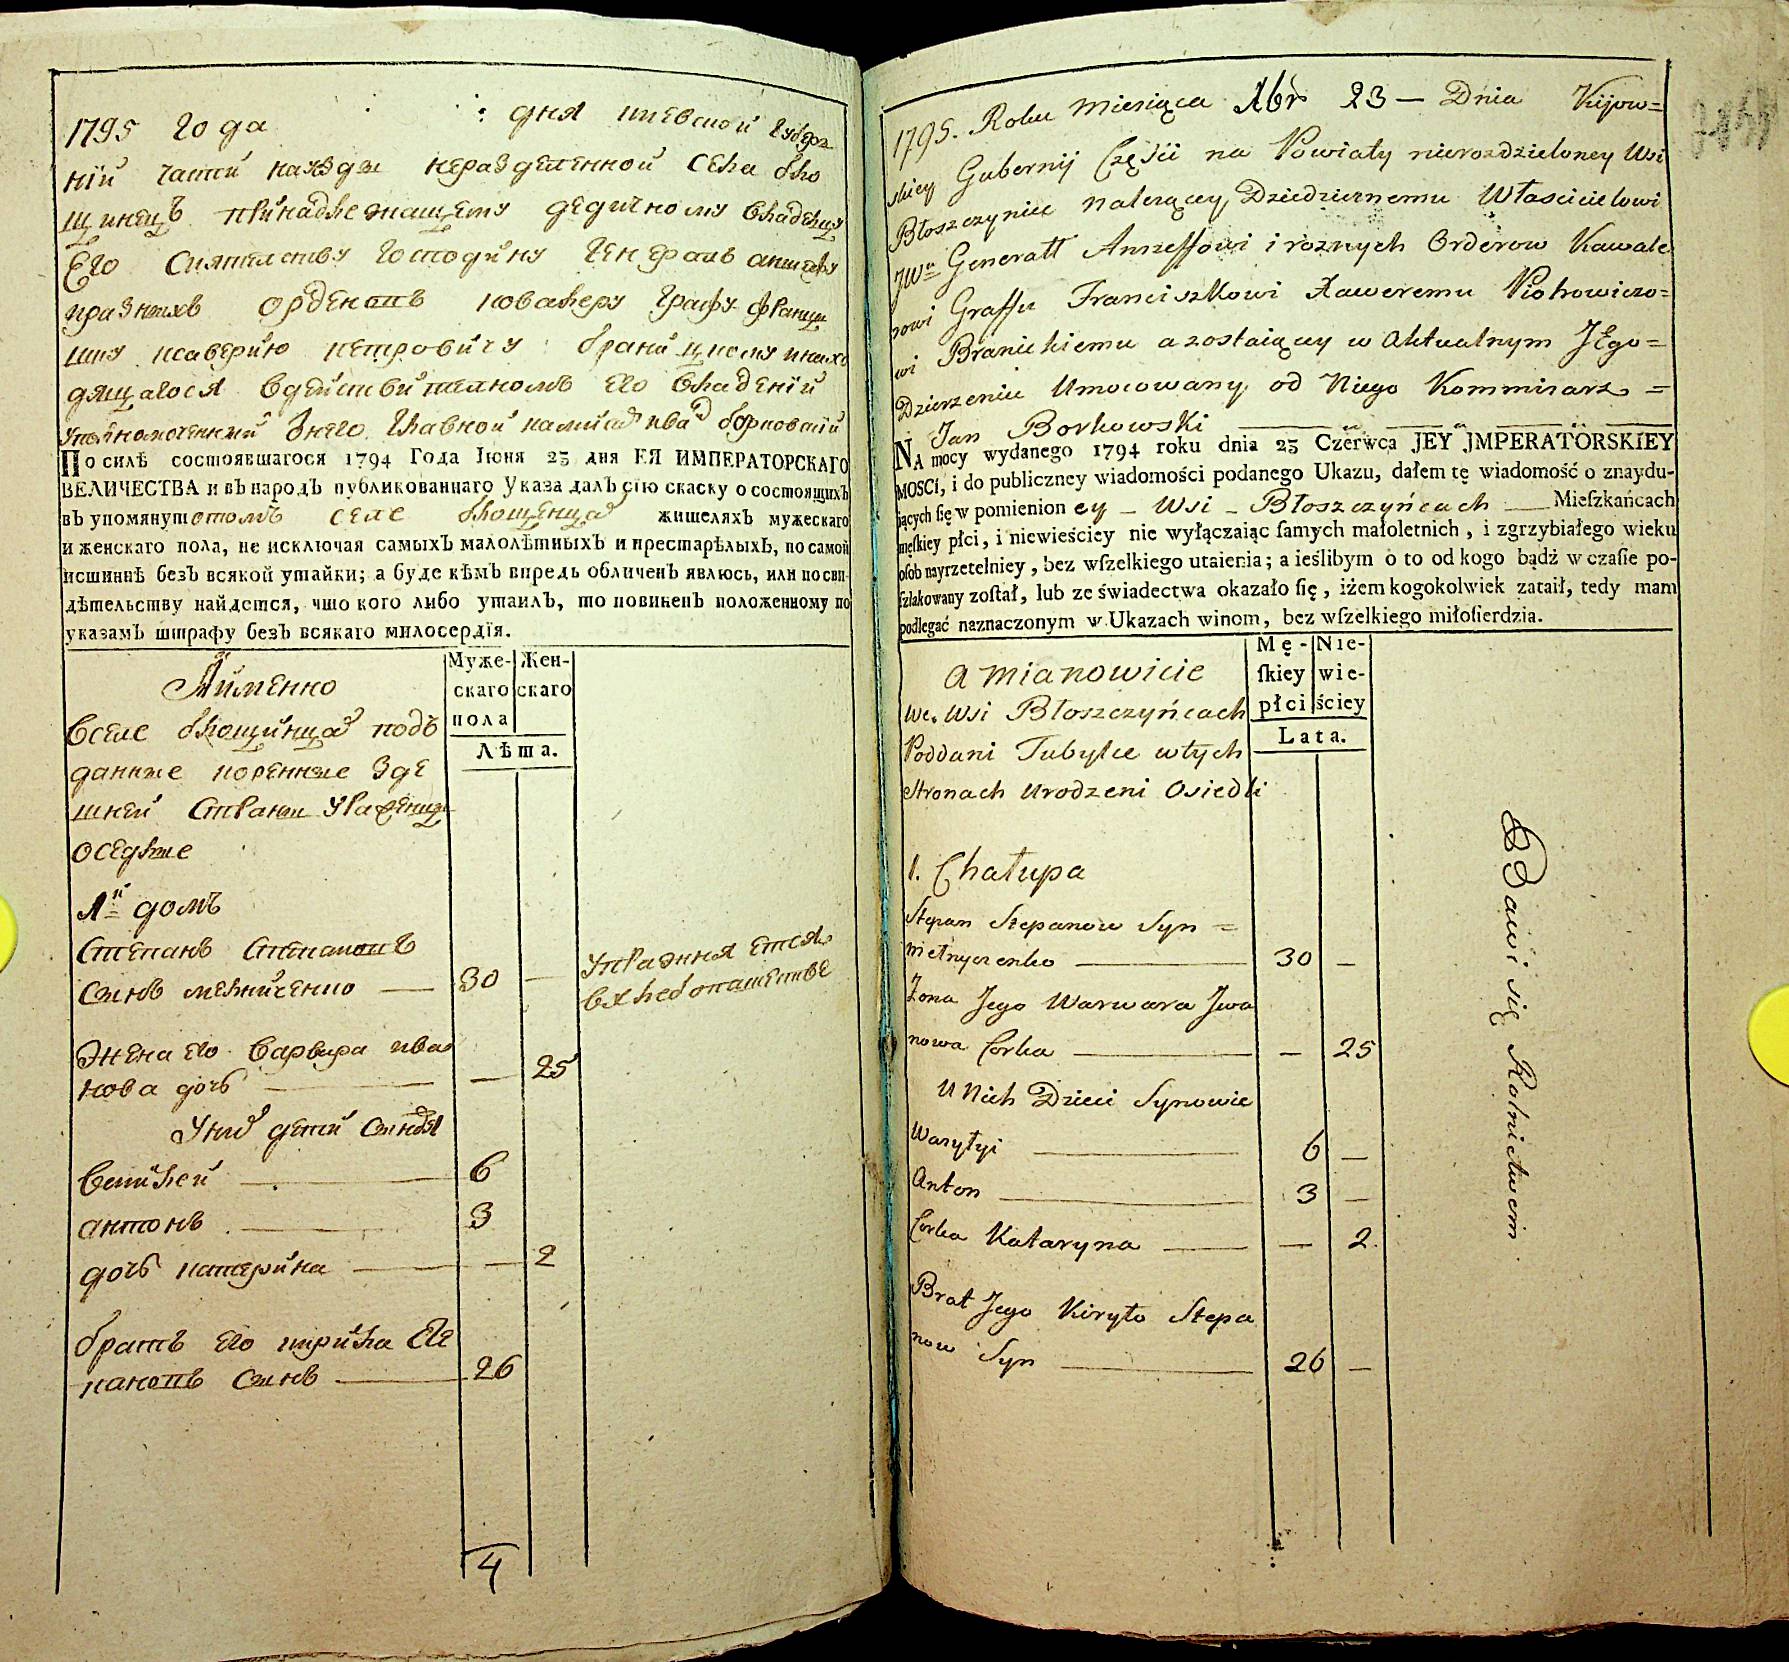 1795 года дня киевской губер
нїй части науезды неразделенной села бло
щинецъ принадлежащему дедичному владелцу
Его Сиятелству Господину Генералъ аншефу
и разныхъ орденовъ ковалеру Графу Франци
шку ксаверїю петровичу браницкому и нахо
дящагося в действителномъ его владенїй
уполномоченный
По силѣ состоявшагося 1794 Года Iюня 23 дня ЕЯ ИМПЕРАТОРСКАГО
ВЕЛИЧЕСТВА и въ народъ публикованнаго Указа далъ сїю скаску о состоящихъ
въ упомянутомъ селе блощинцах жителяхъ мужескаго
и женскаго пола, не исключая самыхъ малолѣтныхъ и престарѣлыхъ, по самой
истиннѣ безъ всякой утайки; а буде кѣмъ впредь обличенъ явлюсь, или по сви-
дѣтельству найдется, что кого либо утаилъ, то повиненъ положенному по
указамъ штрафу безъ всякаго милосердїя.
Аименно
Муже- Жен-
скаго скаго
пола
Лѣта.
Вселе блощинцах подъ
данные коренные зде
шней страны урожденцы
оседлые
1й домъ
Степанъ степановъ
сынъ мелниченко — 30 —
жена его варвара ива
нова дочь — — 25
У них дети сыновя
василей — 6
антонъ — 3
дочь катерина — — 2
братъ его кирила сте
пановъ сынъ — 26
упражняется
в хлебопашестве
4
1795. Roku Miesiąca Xbrˢ 23 — Dnia Kijow=
skiey Gubernij Części na Powiaty nierozdzieloney Wsi
Błoszczyniec należącey Dziedzicznemu Włascicielowi
JWᵘ Generałł Ansze​ffowi i roznych Orderow Kawale
rowi Graffu Franciszkowi Xaweremu Piotrowiczo=
wi Branickiemu a zostaiącey w Aktualnym Jego=
Dzierżeniu Umocowany od Niego Kommisarz =
Jan Borkowski
NA mocy wydanego 1794 roku dnia 23 Czerwca JEY JMPERATORSKIEY
MOSCI, i do publiczney wiadomości podanego Ukazu, dałem tę wiadomość o znaydu-
jących ſię w pomienioney — Wsi — Błoszczyńcach — Mieſzkańcach
męſkiey płci, i niewieściey nie wyłączaiąc ſamych małoletnich, i zgrzybiałego wieku
oſob nayrzetelniey, bez wſzelkiego utaienia; a ieślibym o to od kogo bądź w czaſie po-
ſzlakowany zoſtał, lub ze świadectwa okazało ſię, iżem kogokolwiek zataił, tedy mam
podlegać naznaczonym w Ukazach winom, bez wſzelkiego miłoſierdzia.
A mianowicie
Mę- Nie-
ſkiey wie-
płci ściey
Lata.
We Wsi Błoszczyńcach
Poddani Tubylce w tych
Stronach urodzeni Osiedli
1. Chałupa
Stepan Stepanow Syn =
Melnyczenko — 30 —
Żona Jego Warwara Jwa
nowa Corka — — 25
U Nich Dzieci Synowie
Wasylyi — 6 —
Anton — 3 —
Corka Kataryna — — 2
Brat Jego Kiryło Stepa
now Syn — 26 —
Bawi się Rolnictwem